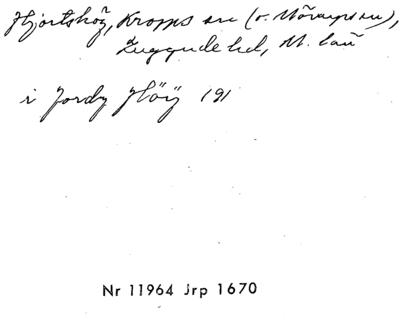 Hjortshög, Kropps sn (o. Mörarps sn),
Luggude hd, M. län
i Jordy Höÿ 191
Nr 11964 Jrp 1670